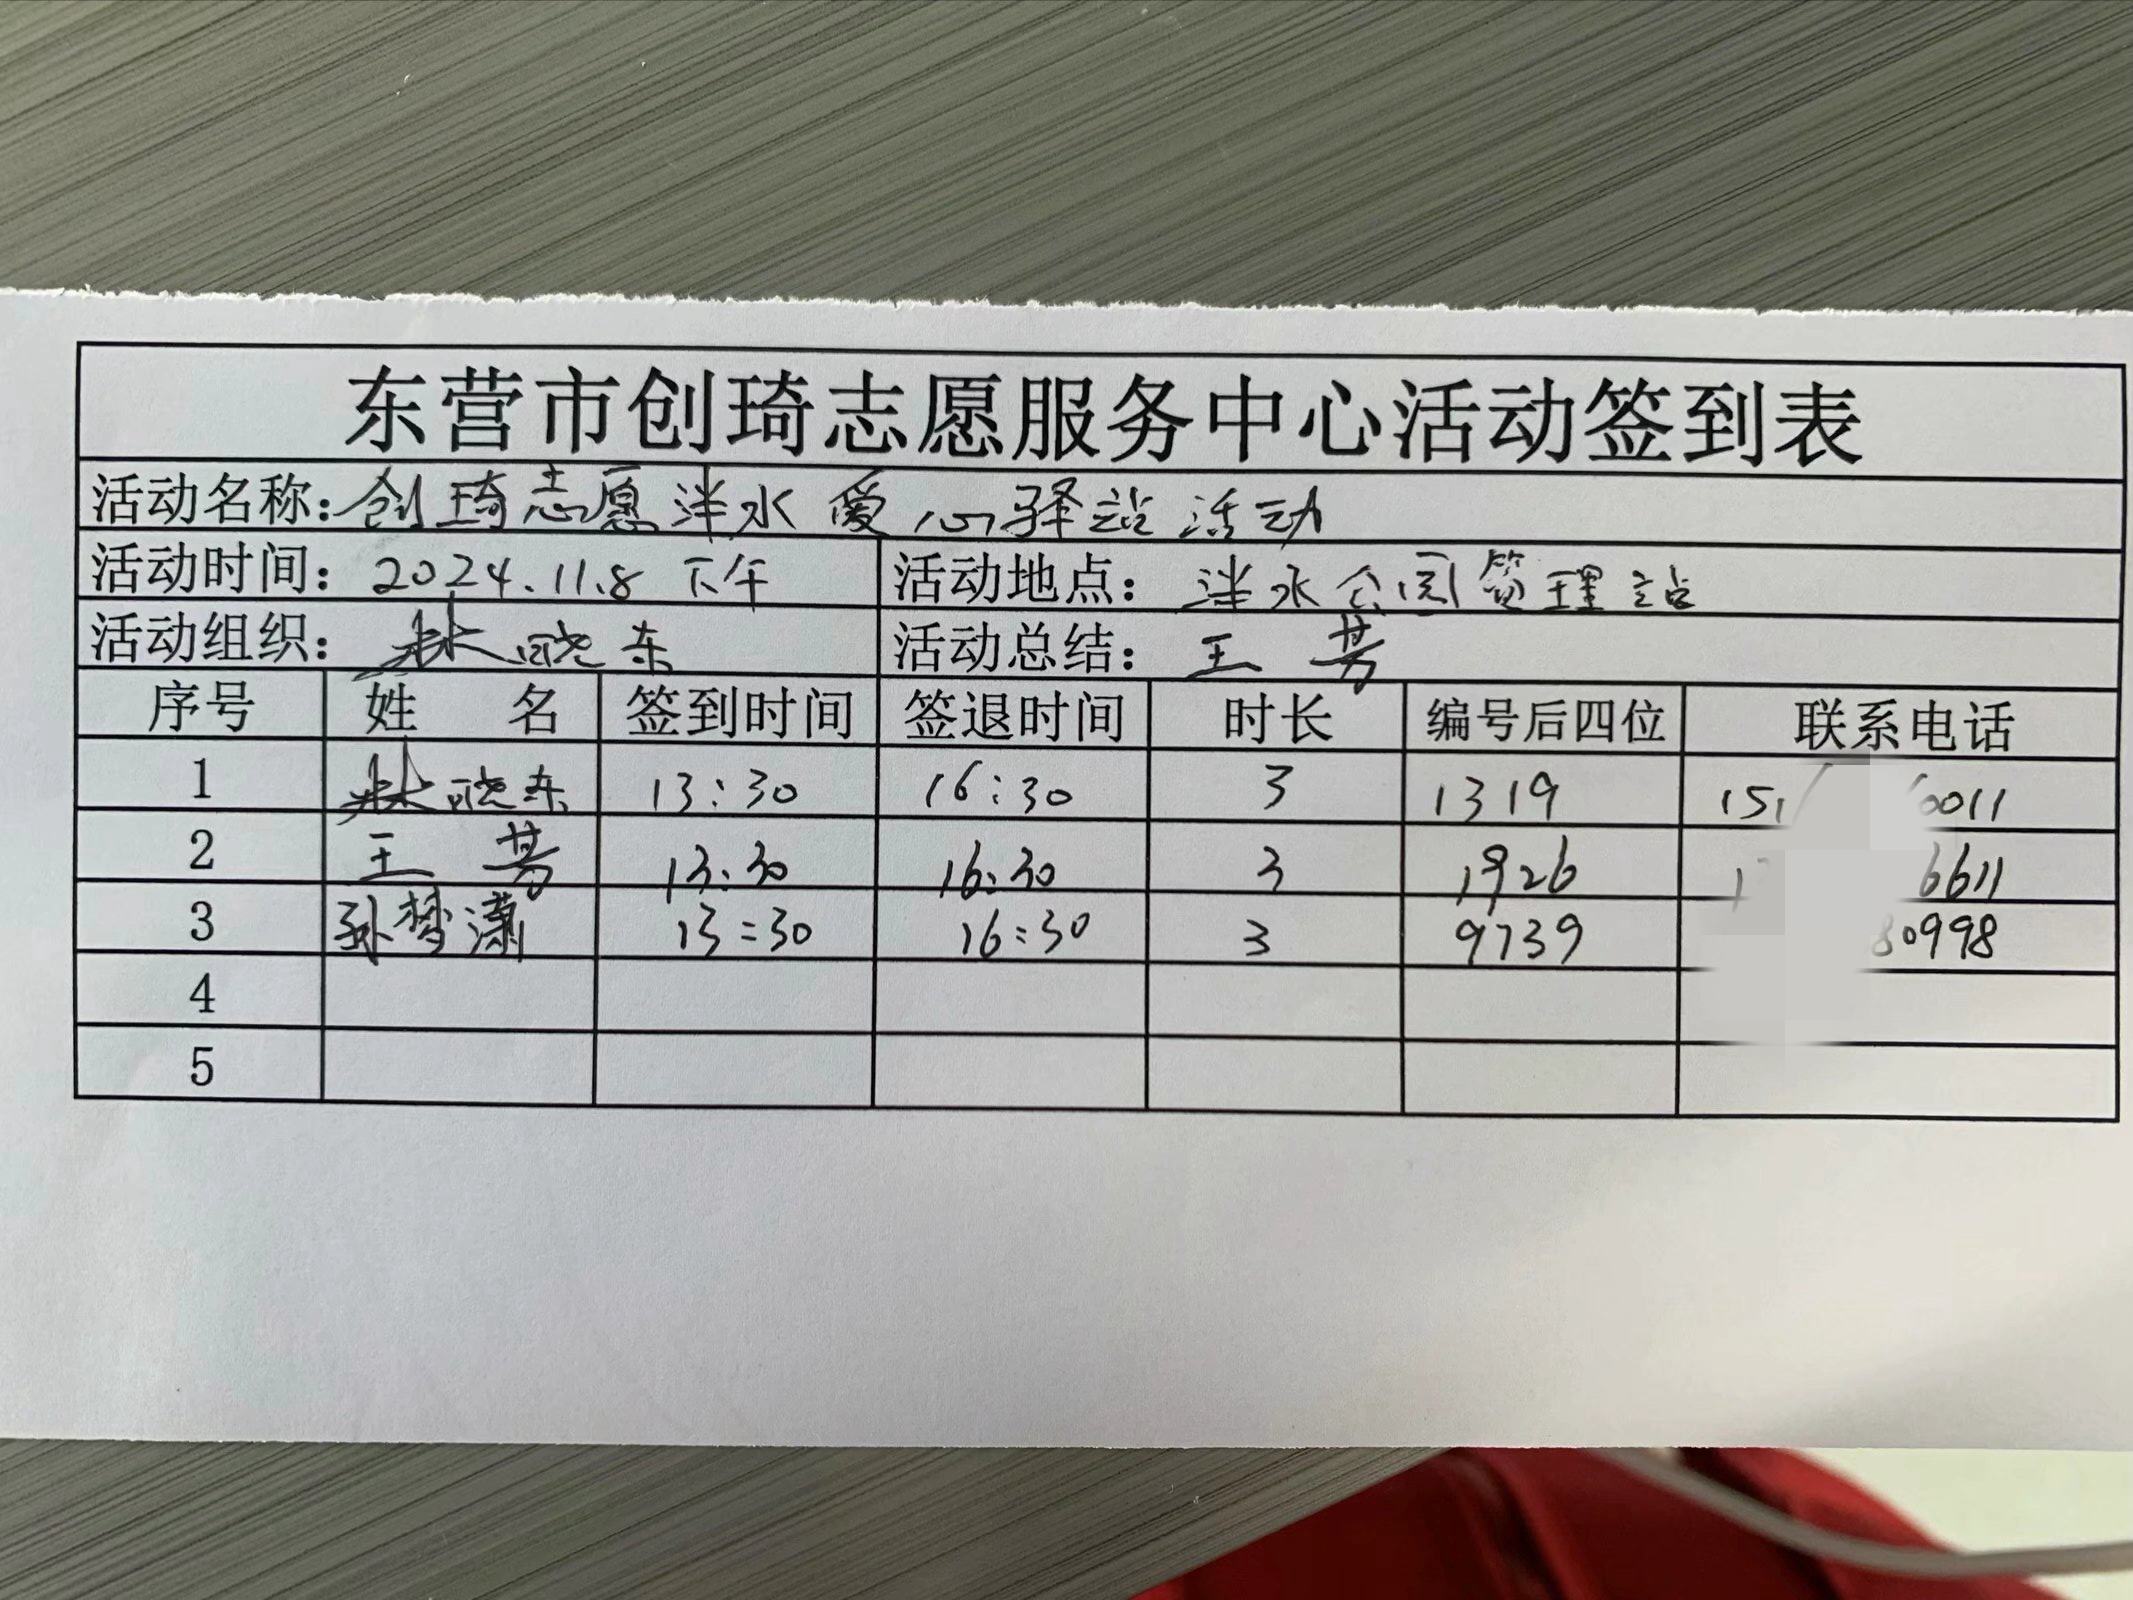 东营市创琦志愿服务中心活动签到表
活动名称：创琦志愿泮水爱心驿站活动
活动时间：2024.11.8 下午 活动地点：泮水公园管理站
活动组织：林晓东 活动总结：王芳
序号 姓名 签到时间 签退时间 时长 编号后四位 联系电话
1 林晓东 13:30 16:30 3 1319 151 0011
2 王芳 13:30 16:30 3 1926 1 6611
3 孙梦潇 13:30 16:30 3 9739 80998
4
5